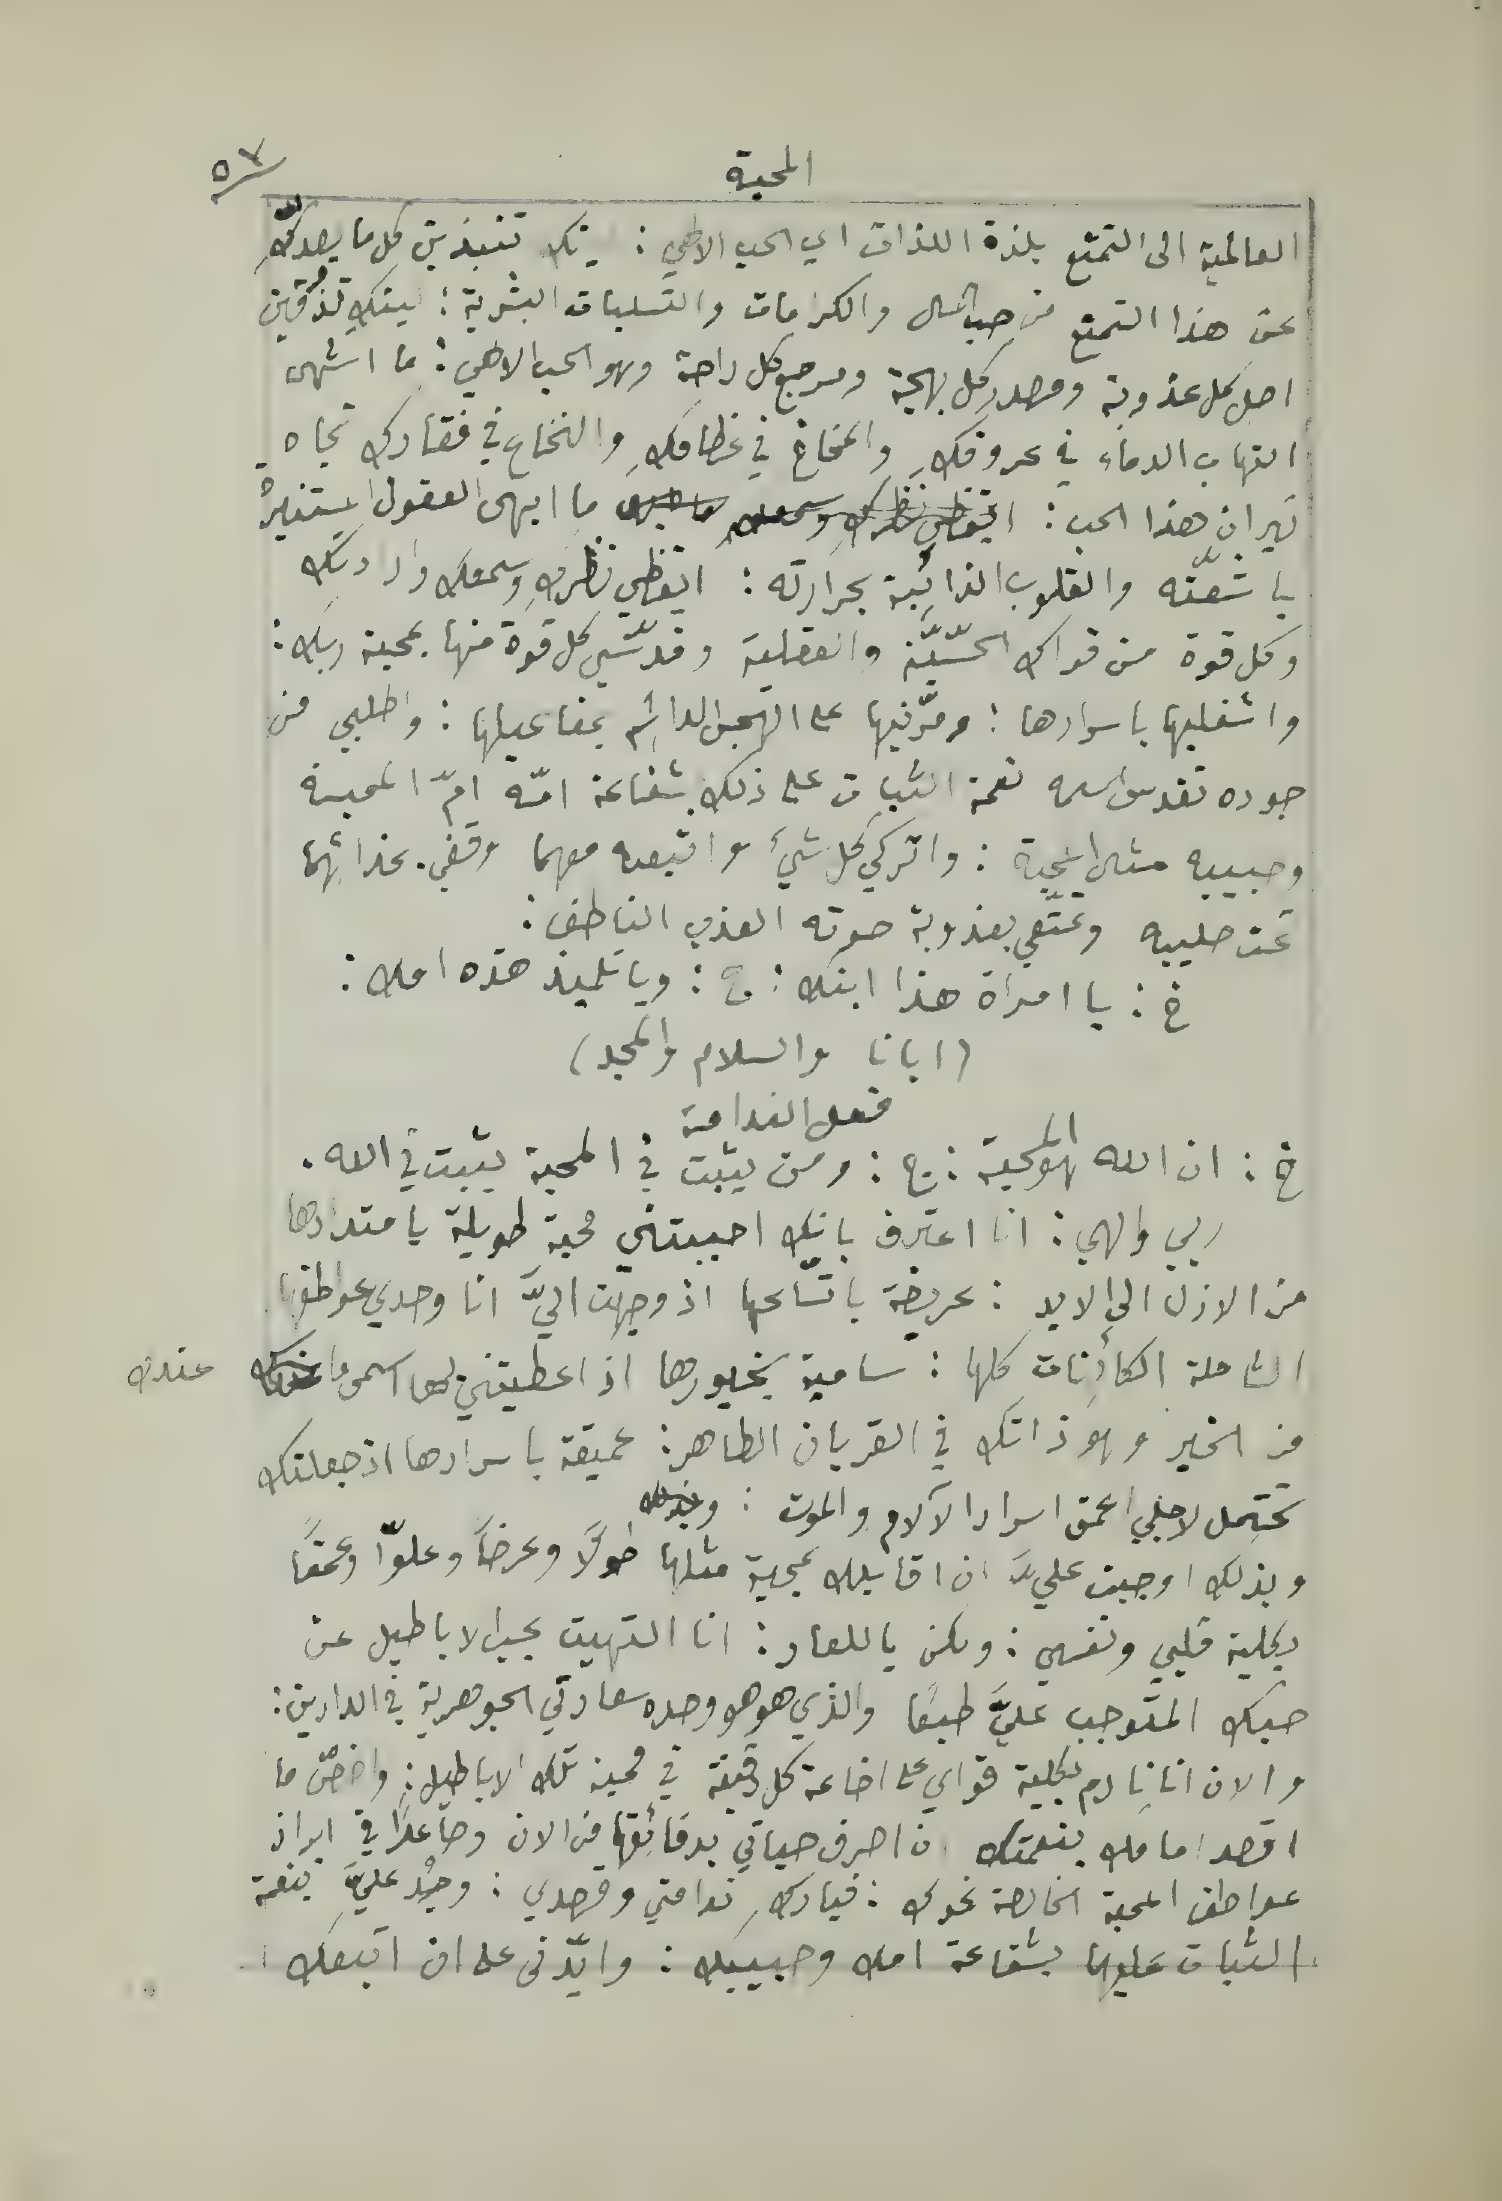 المحبة
٥٧
العالمية الى التمتع بلذة اللذات اي الحب الالهي : تنبذين كل ما يصدكِ
عن هذا التمتع من حب المال والكرامات والتسليات البشرية : ليتكِ تذوقين
اصل كل عذوبة ومصدر كل بهجة ومرجع كل راحة وهو الحب الالهي : ما اشهى
التهاب الدماء في عروقكِ والمخاخ في عظامكِ والنخاع في فقاركِ تجاه
نيران هذا الحب : ما ابهى العقول المستنيرة
باشعّته والقلوب الذائبة بحرارته : ايقظي نظركِ وسمعك وارادتك
وكل قوة من قواك الحسّيّة والعقلية وقدّسي كل قوة منها بمحبة ربك :
واشغليها باسرارها : ومرّنيها على اللهج الدائم بمفاعيلها : واطلبي من
جوده تقدس اسمه نعمة الثبات على ذلك بشفاعة امّه امّ المحبة
وحبيبه مثال المحبة : واتركي كل شيء واتبعيه معهما وقفي بحذائهما
تحت صليبه وتمتّعي بعذوبة صوته العذب الناطق :
خ : يا امراة هذا ابنك : ج : ويا تلميذ هذه امك :
(ابانا والسلام والمجد)
فعل الندامة
خ : ان الله هو المحبة : ج : ومن يثبت في المحبة يثبت في الله .
ربي والهي : انا اعترف بانك احببتني محبة طويلة بامتدادها
من الازل الى الابد : عريضة باتّساعها اذ وجهت اليَّ انا وحدي عواطفها
الشاملة الكائنات كلها : سامية بخيورها اذ اعطيتني بها اسمى ما عندك
من الخير وهو ذاتك في القربان الطاهر : عميقة باسرارها اذ جعلتك
تحتمل لاجلي اعمق اسرار الآلام والموت : وبذلك
وبذلك اوجبت عليَّ ان اقابلك بمحبة مثلها طولًا وعرضًا وعلوًّا وعمقًا
بكلية قلبي ونفسي : ولكن ياللعار : انا التهيت بحب الاباطيل عن
حبك المتوجب عليَّ طبعًا والذي هو هو وحده سعادتي الجوهرية في الدارين :
والان انا نادم بكلية قواي على اضاعة كل دقيقة في محبة تلك الاباطيل : واخصّ ما
اقصد امامك بنعمتك ان اصرف حياتي بدقائقها من الان وصاعدًا في ابراز
عواطف المحبة الخالصة نحوك : فبارك ندامتي وقصدي : وجُد عليَّ بنعمة
الثبات عليها بشفاعة امك وحبيبك : وايّدني على ان اتبعك